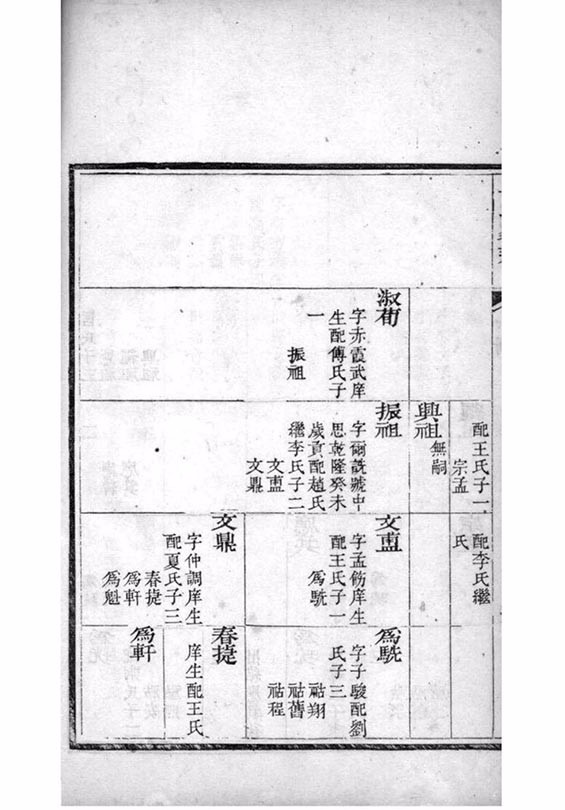 淑荀
字赤霞武庠
生配傅氏子
一
振祖
配王氏子一
宗孟
興祖
無嗣
振祖
字爾詵號中
思乾隆癸未
歲貢配趙氏
繼李氏子二
文
文鼎
配李氏繼
氏
文
字孟庠生
配王氏子一
爲駫
文鼎
字仲調庠生
配夏氏子三
春捷
爲軒
爲魁
爲駫
字子駿配劉
氏子三
祜翔
祜舊
祜程
春捷
庠生配王氏
爲軒